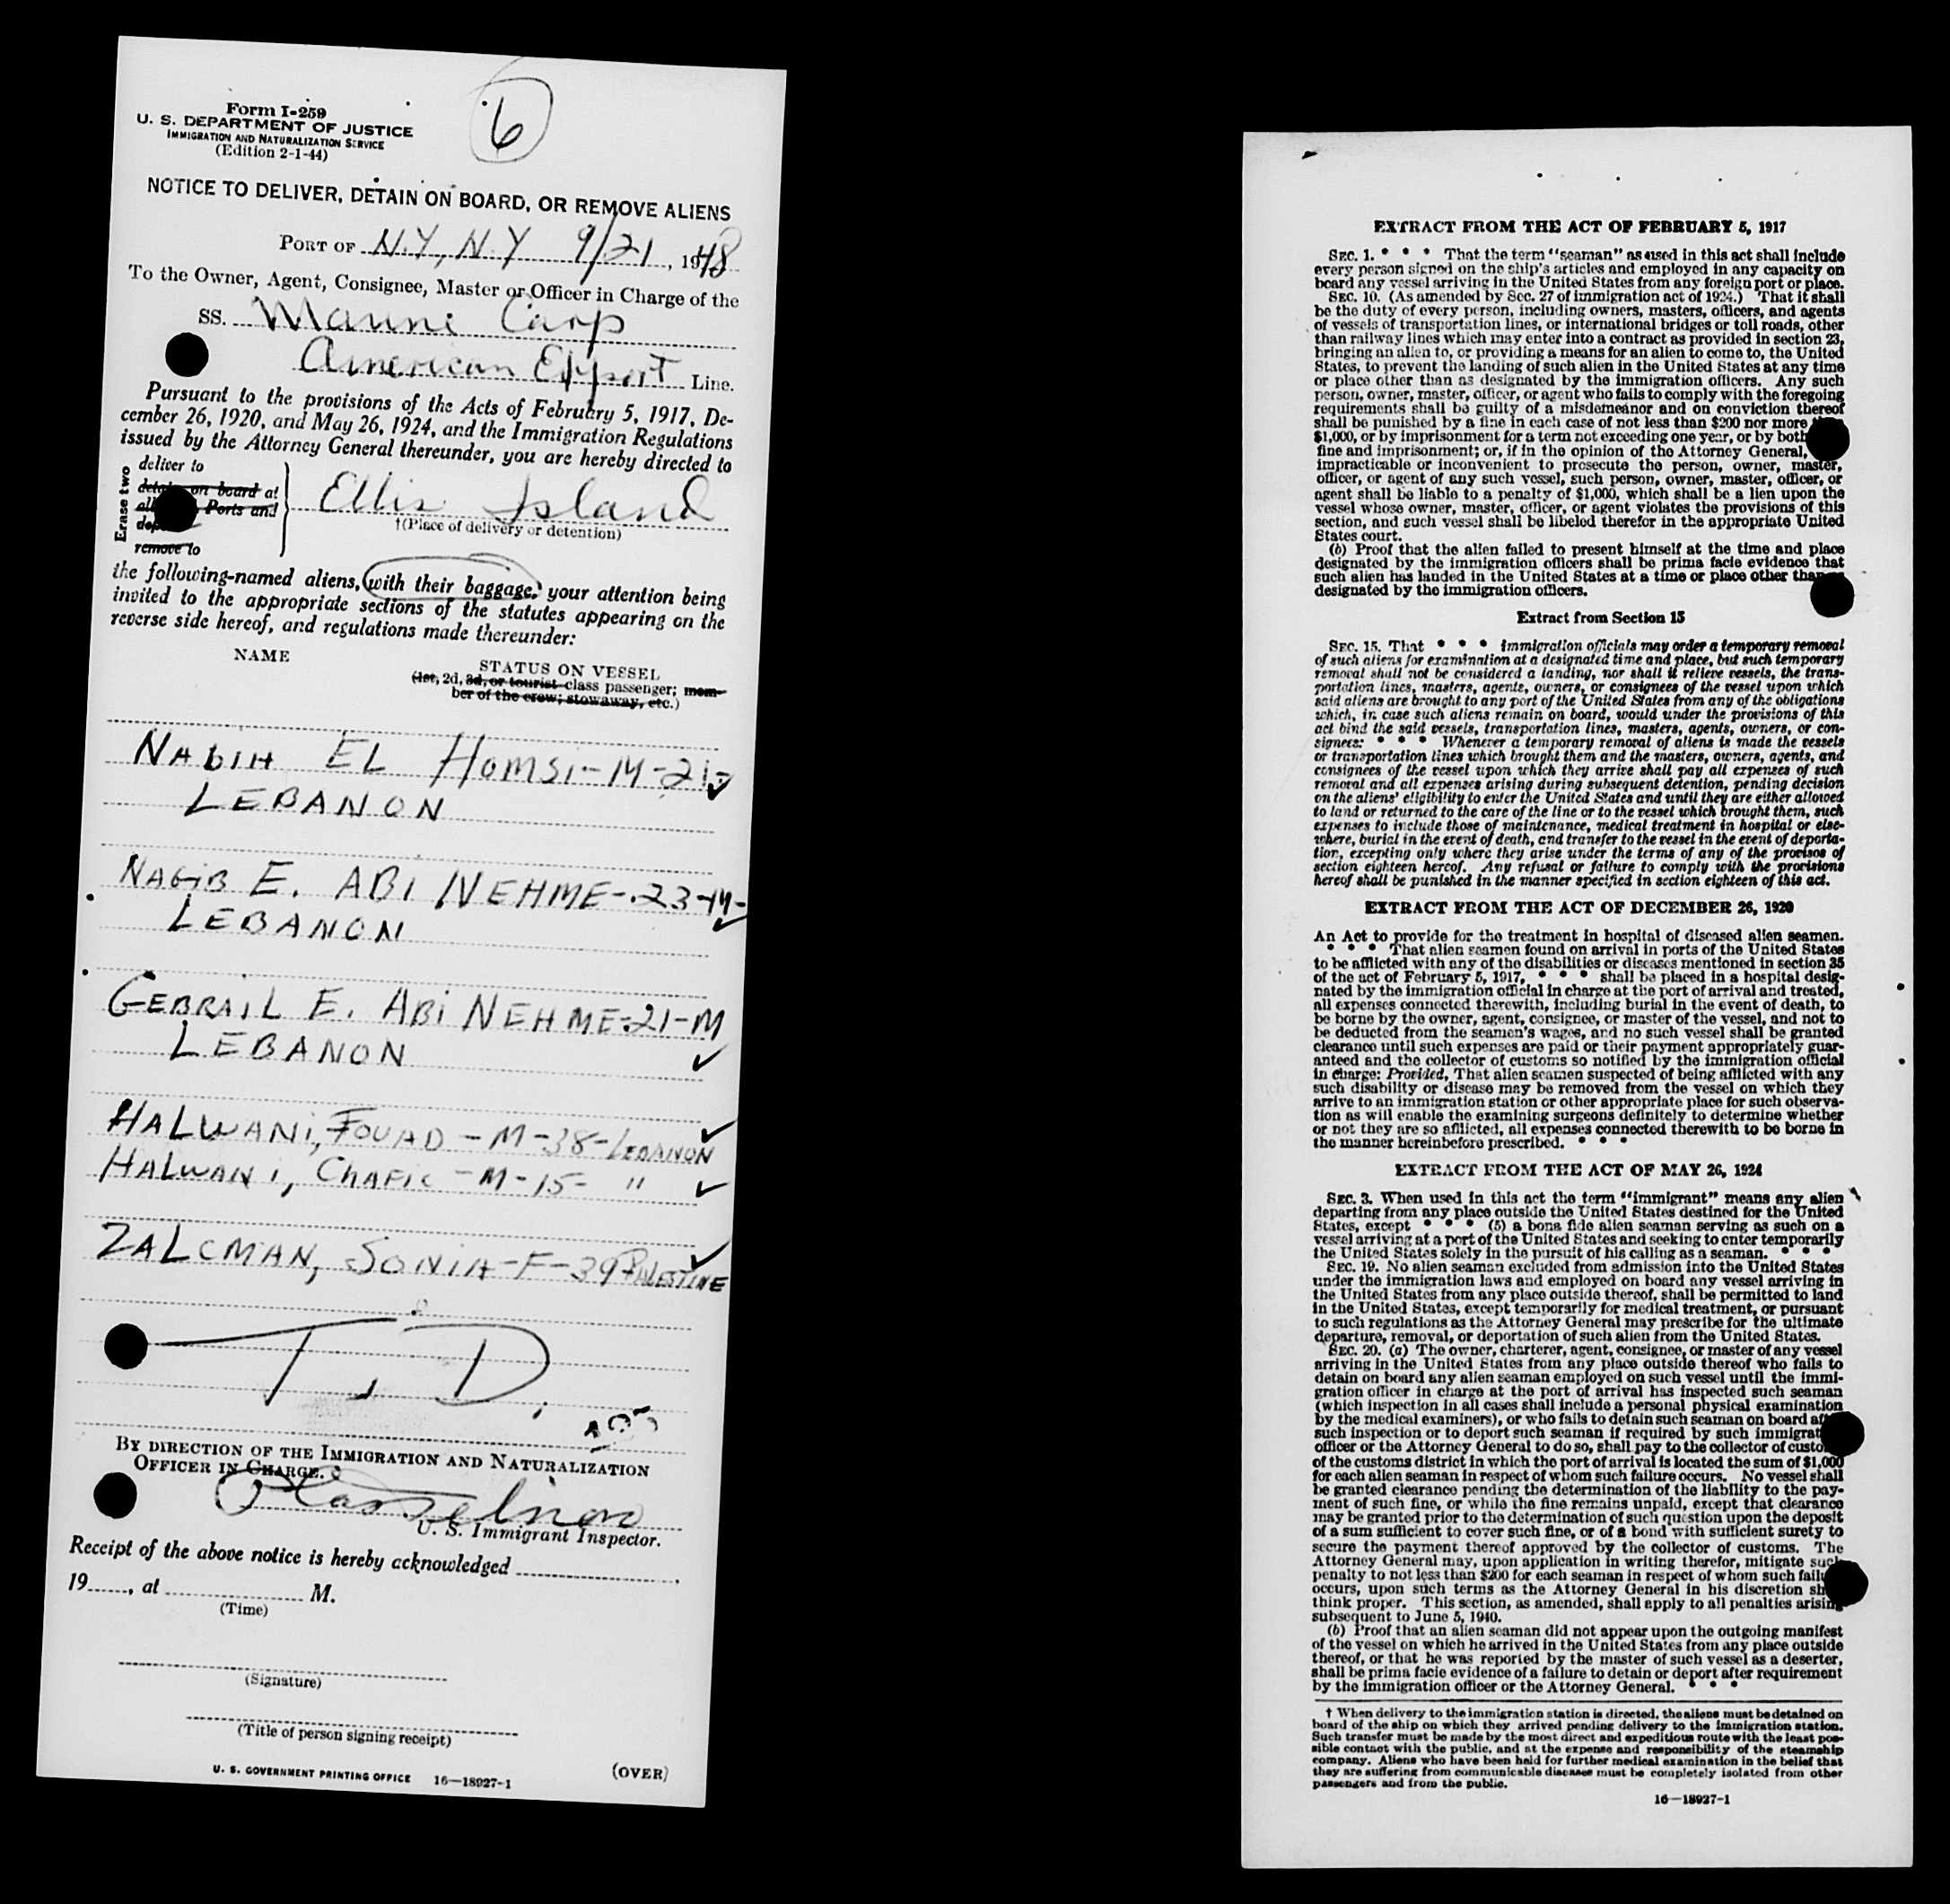 6
Form I-259
U. S. DEPARTMENT OF JUSTICE
IMMIGRATION AND NATURALIZATION SERVICE
(Edition 2-1-44)
NOTICE TO DELIVER, DETAIN ON BOARD, OR REMOVE ALIENS
PORT OF N.Y., N.Y 9/21, 1948
To the Owner, Agent, Consignee, Master or Officer in Charge of the
SS. Marine Carp
American Export Line.
Pursuant to the provisions of the Acts of February 5, 1917, De-
cember 26, 1920, and May 26, 1924, and the Immigration Regulations
issued by the Attorney General thereunder, you are hereby directed to
Erase two
deliver to
detain on board at
all Ports and
remove to
Ellis Island
†(Place of delivery or detention)
the following-named aliens, with their baggage, your attention being
invited to the appropriate sections of the statutes appearing on the
reverse side hereof, and regulations made thereunder:
NAME
STATUS ON VESSEL
(1st, 2d, 3d, or tourist class passenger; mem-
ber of the crew; stowaway, etc.)
NABIH EL HOMSI-M-21-
LEBANON
NAGIB E. ABI NEHME-23-M-
LEBANON
GEBRAIL E. ABI NEHME-21-M
LEBANON
HALWANI, FOUAD-M-38-LEBANON
HALWANI, CHAFIC-M-15- "
ZALCMAN, SONIA-F-39 PALESTINE
T.D.
BY DIRECTION OF THE IMMIGRATION AND NATURALIZATION
OFFICER IN CHARGE.
U. S. Immigrant Inspector.
Receipt of the above notice is hereby acknowledged
19......, at M.
(Time)
(Signature)
(Title of person signing receipt)
U. S. GOVERNMENT PRINTING OFFICE 16—18927-1 (OVER)
EXTRACT FROM THE ACT OF FEBRUARY 5, 1917
SEC. 1. * * * That the term "seaman" as used in this act shall include
every person signed on the ship's articles and employed in any capacity on
board any vessel arriving in the United States from any foreign port or place.
SEC. 10. (As amended by Sec. 27 of immigration act of 1924.) That it shall
be the duty of every person, including owners, masters, officers, and agents
of vessels of transportation lines, or international bridges or toll roads, other
than railway lines which may enter into a contract as provided in section 23,
bringing an alien to, or providing a means for an alien to come to, the United
States, to prevent the landing of such alien in the United States at any time
or place other than as designated by the immigration officers. Any such
person, owner, master, officer, or agent who fails to comply with the foregoing
requirements shall be guilty of a misdemeanor and on conviction thereof
shall be punished by a fine in each case of not less than $200 nor more
$1,000, or by imprisonment for a term not exceeding one year, or by both
fine and imprisonment; or, if in the opinion of the Attorney General,
impracticable or inconvenient to prosecute the person, owner, master,
officer, or agent of any such vessel, such person, owner, master, officer, or
agent shall be liable to a penalty of $1,000, which shall be a lien upon the
vessel whose owner, master, officer, or agent violates the provisions of this
section, and such vessel shall be libeled therefor in the appropriate United
States court.
(b) Proof that the alien failed to present himself at the time and place
designated by the immigration officers shall be prima facie evidence that
such alien has landed in the United States at a time or place other than
designated by the immigration officers.
Extract from Section 15
SEC. 15. That * * * immigration officials may order a temporary removal
of such aliens for examination at a designated time and place, but such temporary
removal shall not be considered a landing, nor shall it relieve vessels, the trans-
portation lines, masters, agents, owners, or consignees of the vessel upon which
said aliens are brought to any port of the United States from any of the obligations
which, in case such aliens remain on board, would under the provisions of this
act bind the said vessels, transportation lines, masters, agents, owners, or con-
signees: * * * Whenever a temporary removal of aliens is made the vessels
or transportation lines which brought them and the masters, owners, agents, and
consignees of the vessel upon which they arrive shall pay all expenses of such
removal and all expenses arising during subsequent detention, pending decision
on the aliens' eligibility to enter the United States and until they are either allowed
to land or returned to the care of the line or to the vessel which brought them, such
expenses to include those of maintenance, medical treatment in hospital or else-
where, burial in the event of death, and transfer to the vessel in the event of deporta-
tion, excepting only where they arise under the terms of any of the provisos of
section eighteen hereof. Any refusal or failure to comply with the provisions
hereof shall be punished in the manner specified in section eighteen of this act.
EXTRACT FROM THE ACT OF DECEMBER 26, 1920
An Act to provide for the treatment in hospital of diseased alien seamen.
* * * That alien seamen found on arrival in ports of the United States
to be afflicted with any of the disabilities or diseases mentioned in section 35
of the act of February 5, 1917, * * * shall be placed in a hospital desig-
nated by the immigration official in charge at the port of arrival and treated,
all expenses connected therewith, including burial in the event of death, to
be borne by the owner, agent, consignee, or master of the vessel, and not to
be deducted from the seamen's wages, and no such vessel shall be granted
clearance until such expenses are paid or their payment appropriately guar-
anteed and the collector of customs so notified by the immigration official
in charge: Provided, That alien seamen suspected of being afflicted with any
such disability or disease may be removed from the vessel on which they
arrive to an immigration station or other appropriate place for such observa-
tion as will enable the examining surgeons definitely to determine whether
or not they are so afflicted, all expenses connected therewith to be borne in
the manner hereinbefore prescribed. * * *
EXTRACT FROM THE ACT OF MAY 26, 1924
SEC. 3. When used in this act the term "immigrant" means any alien
departing from any place outside the United States destined for the United
States, except * * * (5) a bona fide alien seaman serving as such on a
vessel arriving at a port of the United States and seeking to enter temporarily
the United States solely in the pursuit of his calling as a seaman. * * *
SEC. 19. No alien seaman excluded from admission into the United States
under the immigration laws and employed on board any vessel arriving in
the United States from any place outside thereof, shall be permitted to land
in the United States, except temporarily for medical treatment, or pursuant
to such regulations as the Attorney General may prescribe for the ultimate
departure, removal, or deportation of such alien from the United States.
SEC. 20. (a) The owner, charterer, agent, consignee, or master of any vessel
arriving in the United States from any place outside thereof who fails to
detain on board any alien seaman employed on such vessel until the immi-
gration officer in charge at the port of arrival has inspected such seaman
(which inspection in all cases shall include a personal physical examination
by the medical examiners), or who fails to detain such seaman on board
such inspection or to deport such seaman if required by such
officer or the Attorney General to do so, shall pay to the collector of
of the customs district in which the port of arrival is located the sum of $1,000
for each alien seaman in respect of whom such failure occurs. No vessel shall
be granted clearance pending the determination of the liability to the pay-
ment of such fine, or while the fine remains unpaid, except that clearance
may be granted prior to the determination of such question upon the deposit
of a sum sufficient to cover such fine, or of a bond with sufficient surety to
secure the payment thereof approved by the collector of customs. The
Attorney General may, upon application in writing therefor, mitigate such
penalty to not less than $200 for each seaman in respect of whom such
occurs, upon such terms as the Attorney General in his discretion
think proper. This section, as amended, shall apply to all penalties arising
subsequent to June 5, 1940.
(b) Proof that an alien seaman did not appear upon the outgoing manifest
of the vessel on which he arrived in the United States from any place outside
thereof, or that he was reported by the master of such vessel as a deserter,
shall be prima facie evidence of a failure to detain or deport after requirement
by the immigration officer or the Attorney General. * * *
† When delivery to the immigration station is directed, the aliens must be detained on
board of the ship on which they arrived pending delivery to the immigration station.
Such transfer must be made by the most direct and expeditious route with the least pos-
sible contact with the public, and at the expense and responsibility of the steamship
company. Aliens who have been held for further medical examination in the belief that
they are suffering from communicable diseases must be completely isolated from other
passengers and from the public.
16—18927-1